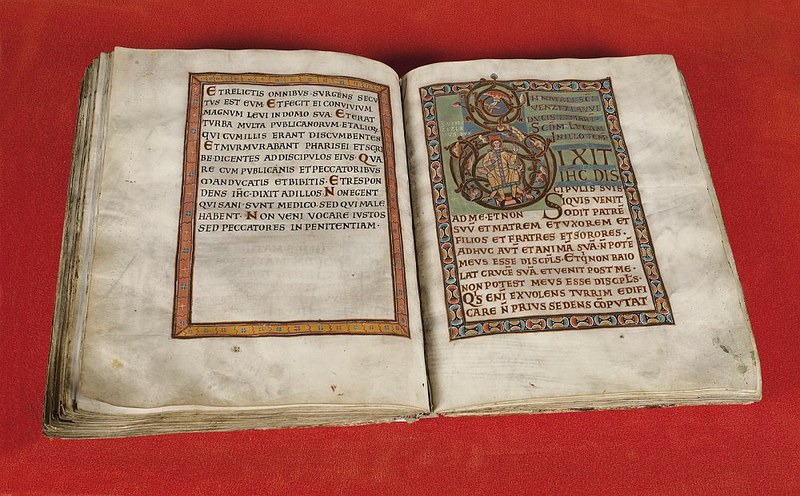 ET RELICTIS OMNIBUS · SURGENS SECU
TUS EST EUM · ET FECIT EI CONVIVIUM
MAGNUM LEVI IN DOMO SUA · ET ERAT
TURBA MULTA PUBLICANORUM · ET ALIOR
QUI CUM ILLIS ERANT DISCUMBENTES
ET MURMURABANT PHARISEI ET SCRI
BE · DICENTES AD DISCIPULOS EIUS · QUA
RE CUM PUBLICANIS ET PECCATORIBUS
MANDUCATIS ET BIBITIS · ET RESPON
DENS IHC · DIXIT AD ILLOS · NON EGENT
QUI SANI SUNT MEDICO · SED QUI MALE
HABENT · NON VENI VOCARE IUSTOS
SED PECCATORES IN PENITENTIAM ·
IN NATALE SCI
DUCIS
SCDM LUCAM
IN ILLO TEMP
DIXIT
IHC DIS
CIPULIS SUIS
SIQUIS VENIT
AD ME · ET NON ODIT PATRE
SUU ET MATREM ET UXOREM ET
FILIOS ET FRATRES ET SORORES ·
ADHUC AUT ET ANIMA SUA · N POTE
MEUS ESSE DISCPLS · ET Q NON BAIO
LAT CRUCE SUA ET VENIT POST ME ·
NON POTEST MEUS ESSE DISCPLS ·
QS ENI EX VOLENS TURRIM EDIFI
CARE N PRIUS SEDENS COPUTAT